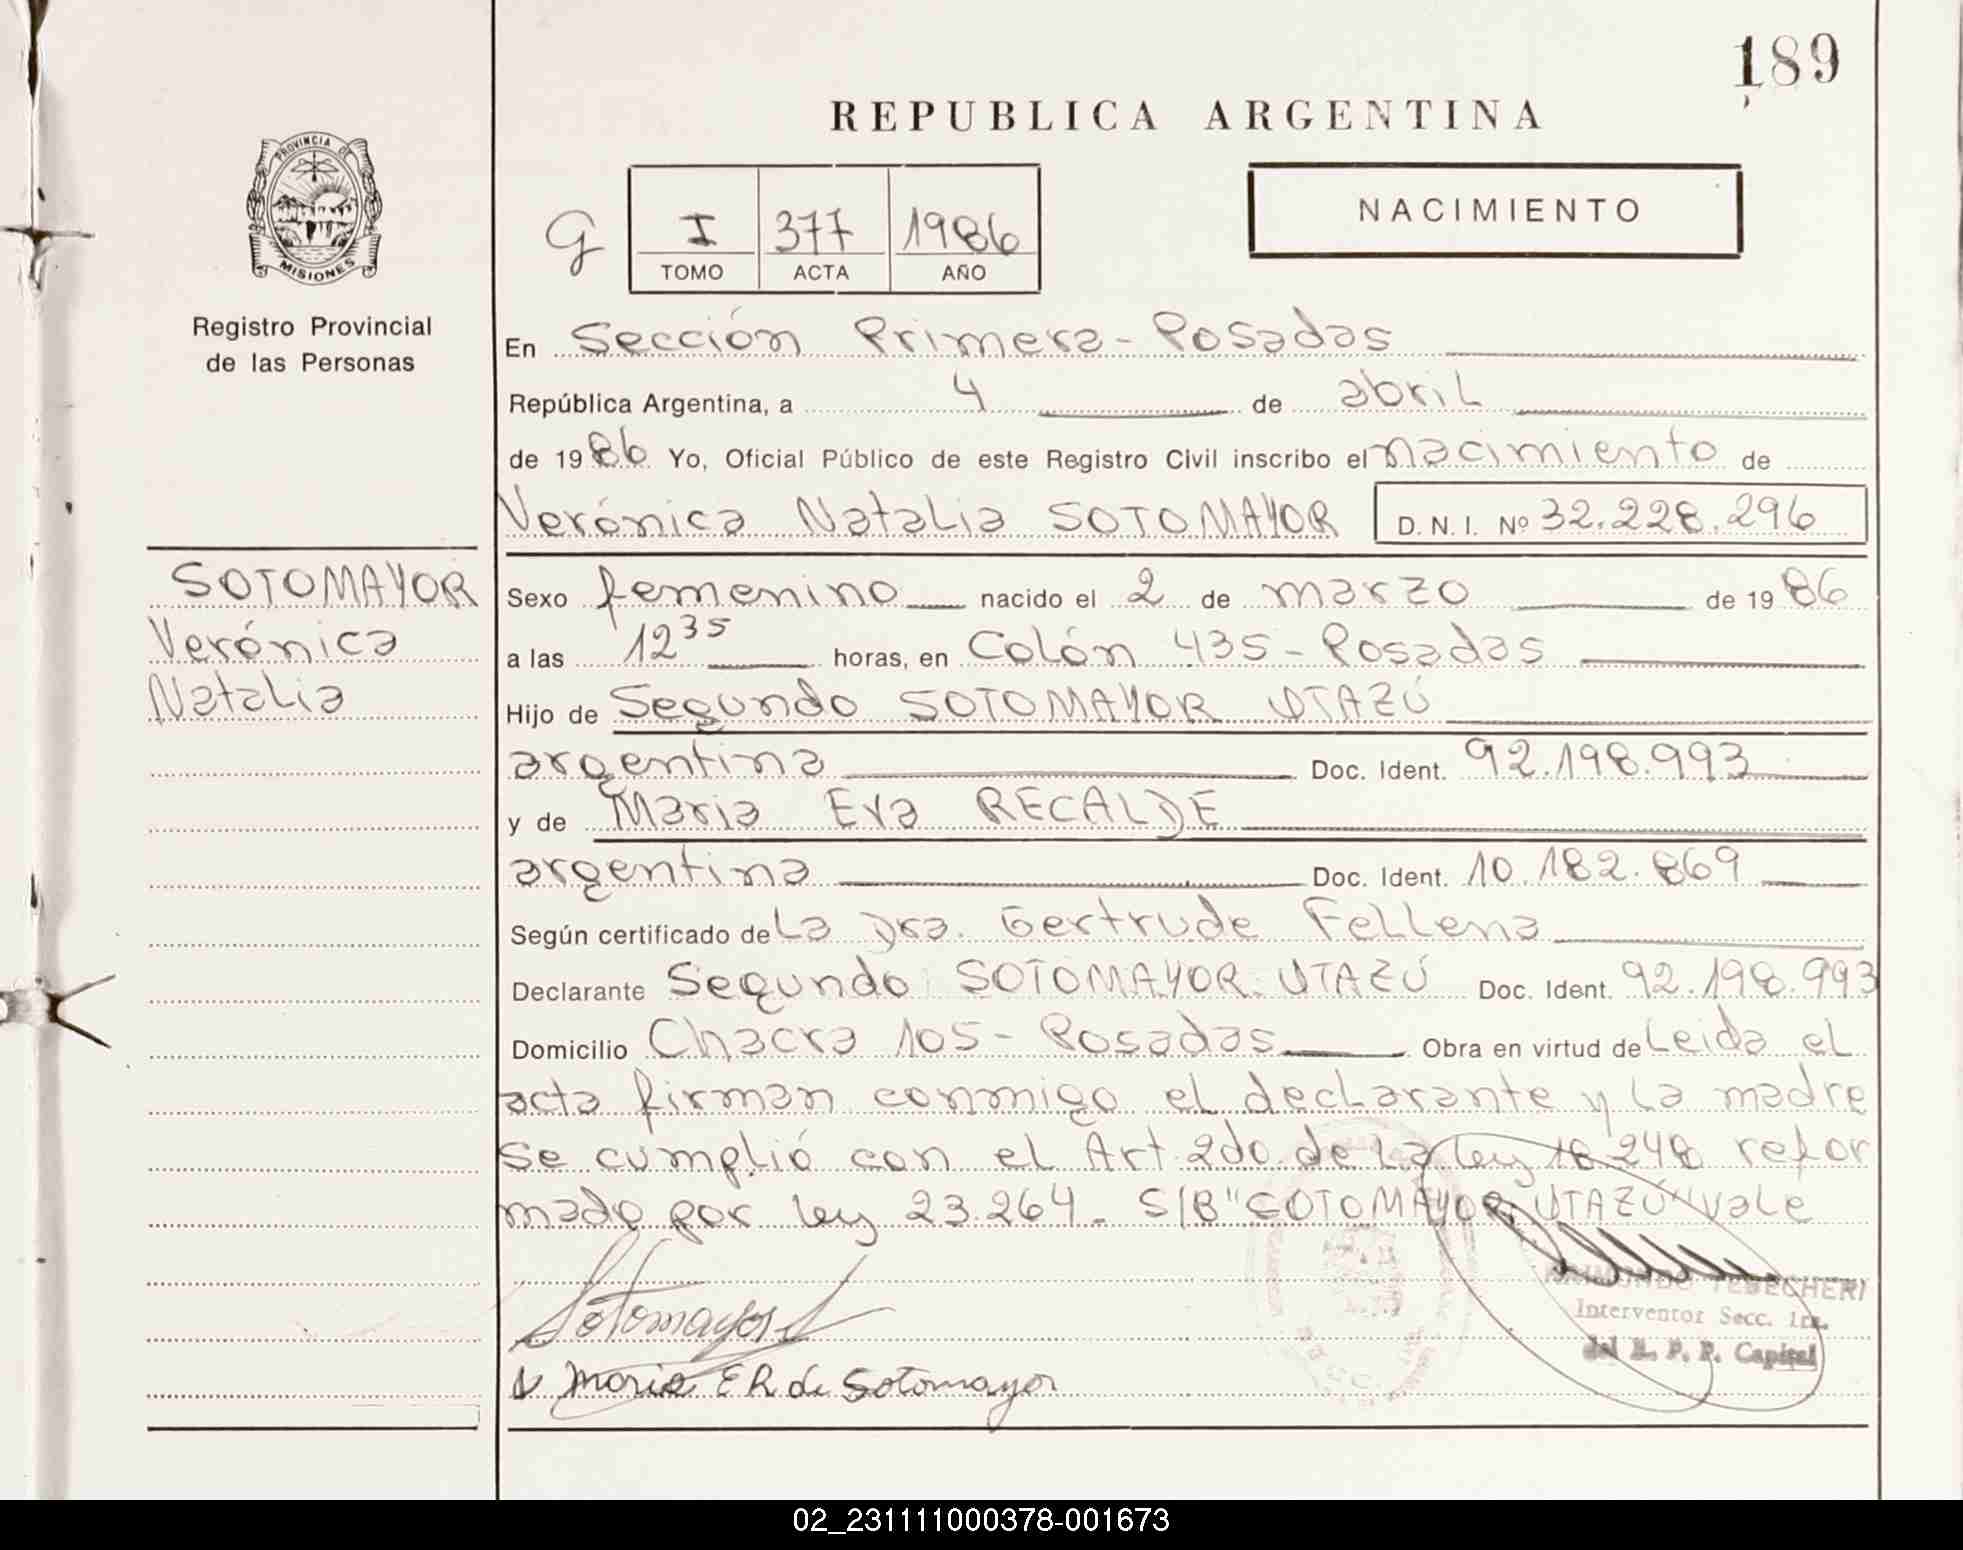 189
REPUBLICA ARGENTINA
PROVINCIA DE
MISIONES
Registro Provincial
de las Personas
G
I 377 1986
TOMO ACTA AÑO
NACIMIENTO
En Sección Primera - Posadas
República Argentina, a 4 de abril
de 1986 Yo, Oficial Público de este Registro Civil inscribo el nacimiento de
Verónica Natalia SOTOMAYOR D. N. I. Nº 32.228.296
SOTOMAYOR
Verónica
Natalia
Sexo femenino nacido el 2 de marzo de 1986
a las 12 35 horas, en Colón 435 - Posadas
Hijo de Segundo SOTOMAYOR UTAZÚ
argentina Doc. Ident. 92.198.993
y de Maria Eva RECALDE
argentina Doc. Ident. 10.182.869
Según certificado de La Dra. Gertrude Fellena
Declarante Segundo SOTOMAYOR UTAZÚ Doc. Ident. 92.198.993
Domicilio Chacra 105 - Posadas Obra en virtud de Leida el
acta firman conmigo el declarante y la madre
se cumplió con el Art 2do de la ley 18.248 refor
mado por ley 23.264 - S/B "SOTOMAYOR UTAZÚ" Vale
Sotomayor S
Maria E R de Sotomayor
Interventor Secc. 1ra.
del R. P. P. Capital
02_231111000378-001673